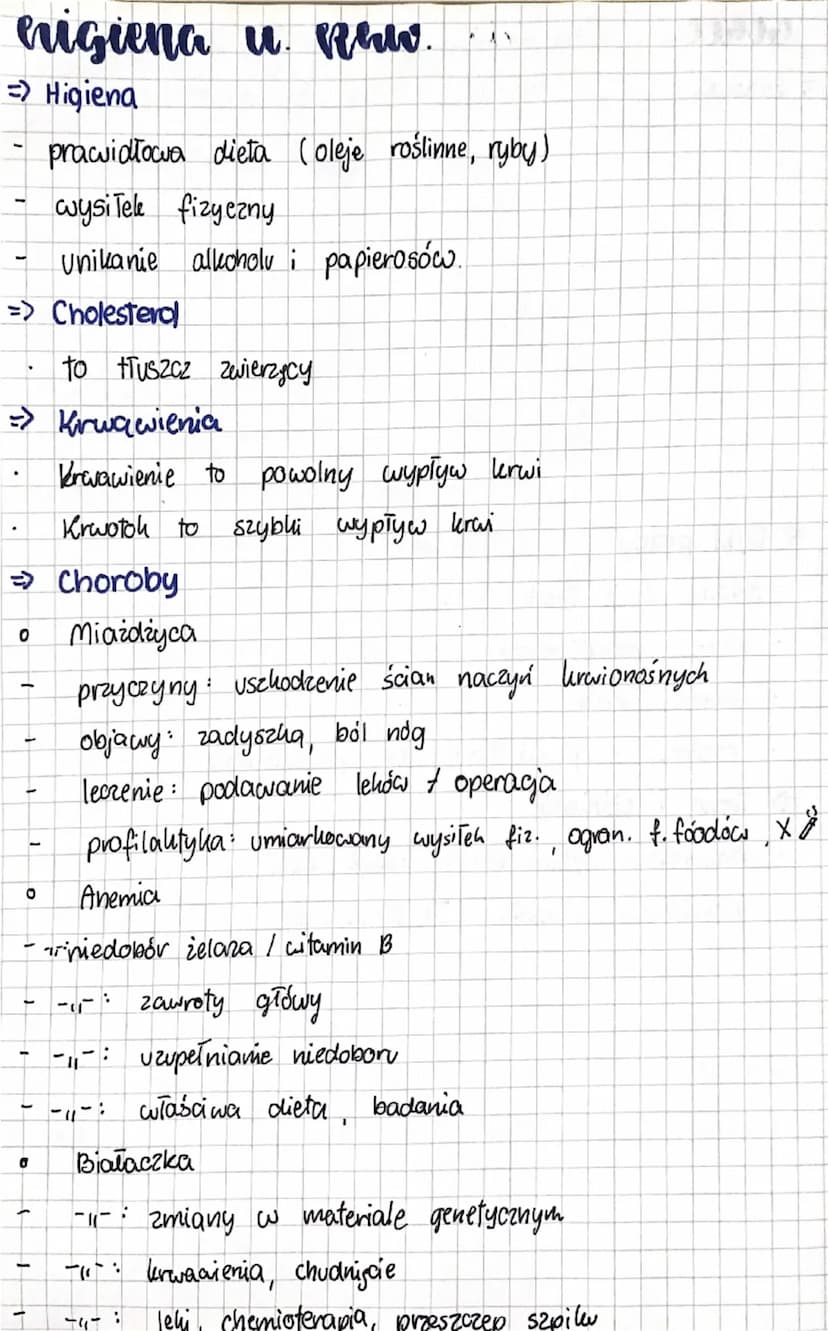 higiena u. krwo. ...
=> Higiena
- prawidłowa dieta (oleje roślinne, ryby)
- wysiłek fizyczny
- unikanie alkoholu i papierosów.
=> Cholesterol
· to tłuszcz zwierzęcy
=> Krwawienia
· Krwawienie to powolny wypływ krwi
· Krwotok to szybki wypływ krwi
=> Choroby
o Miażdżyca
- przyczyny: uszkodzenie ścian naczyń krwionośnych
- objawy: zadyszka, ból nóg
- leczenie: podawanie leków / operacja
- profilaktyka: umiarkowany wysiłek fiz., ogran. f. foodów, X
o Anemia
- niedobór żelaza / witamin B
- -||-: zawroty głowy
- -||-: uzupełnianie niedoboru
- -||-: właściwa dieta, badania
o Białaczka
- -||-: zmiany w materiale genetycznym
- -||-: krwawienia, chudnięcie
- -||-: leki, chemioterapia, przeszczep szpiku